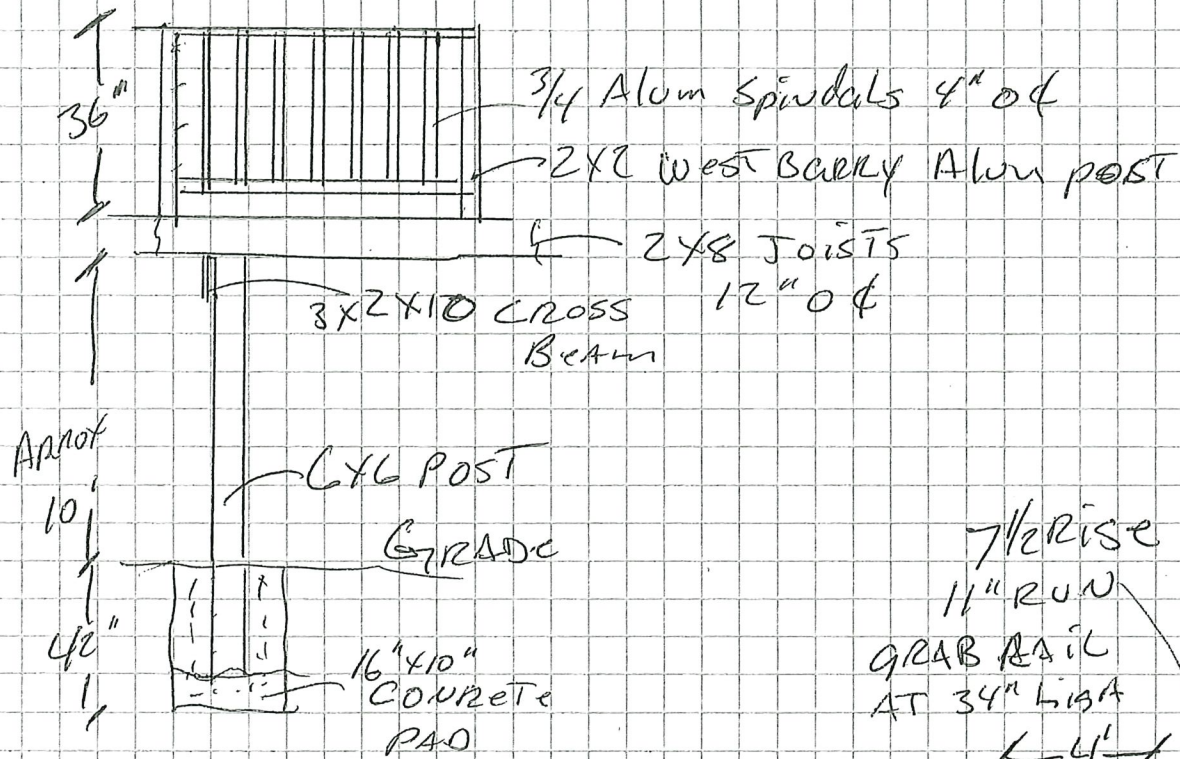 36"
3/4 Alum Spindals 4" o ¢
2X2 west BARRY Alum post
2X8 JOISTS
12" o ¢
3X2X10 CROSS
Beam
Aprox
10'
6X6 POST
GRADE
42"
16"X10"
CONRETE
PAD
7 1/2 RISE
11" RUN
GRAB RAIL
AT 34" high
4'